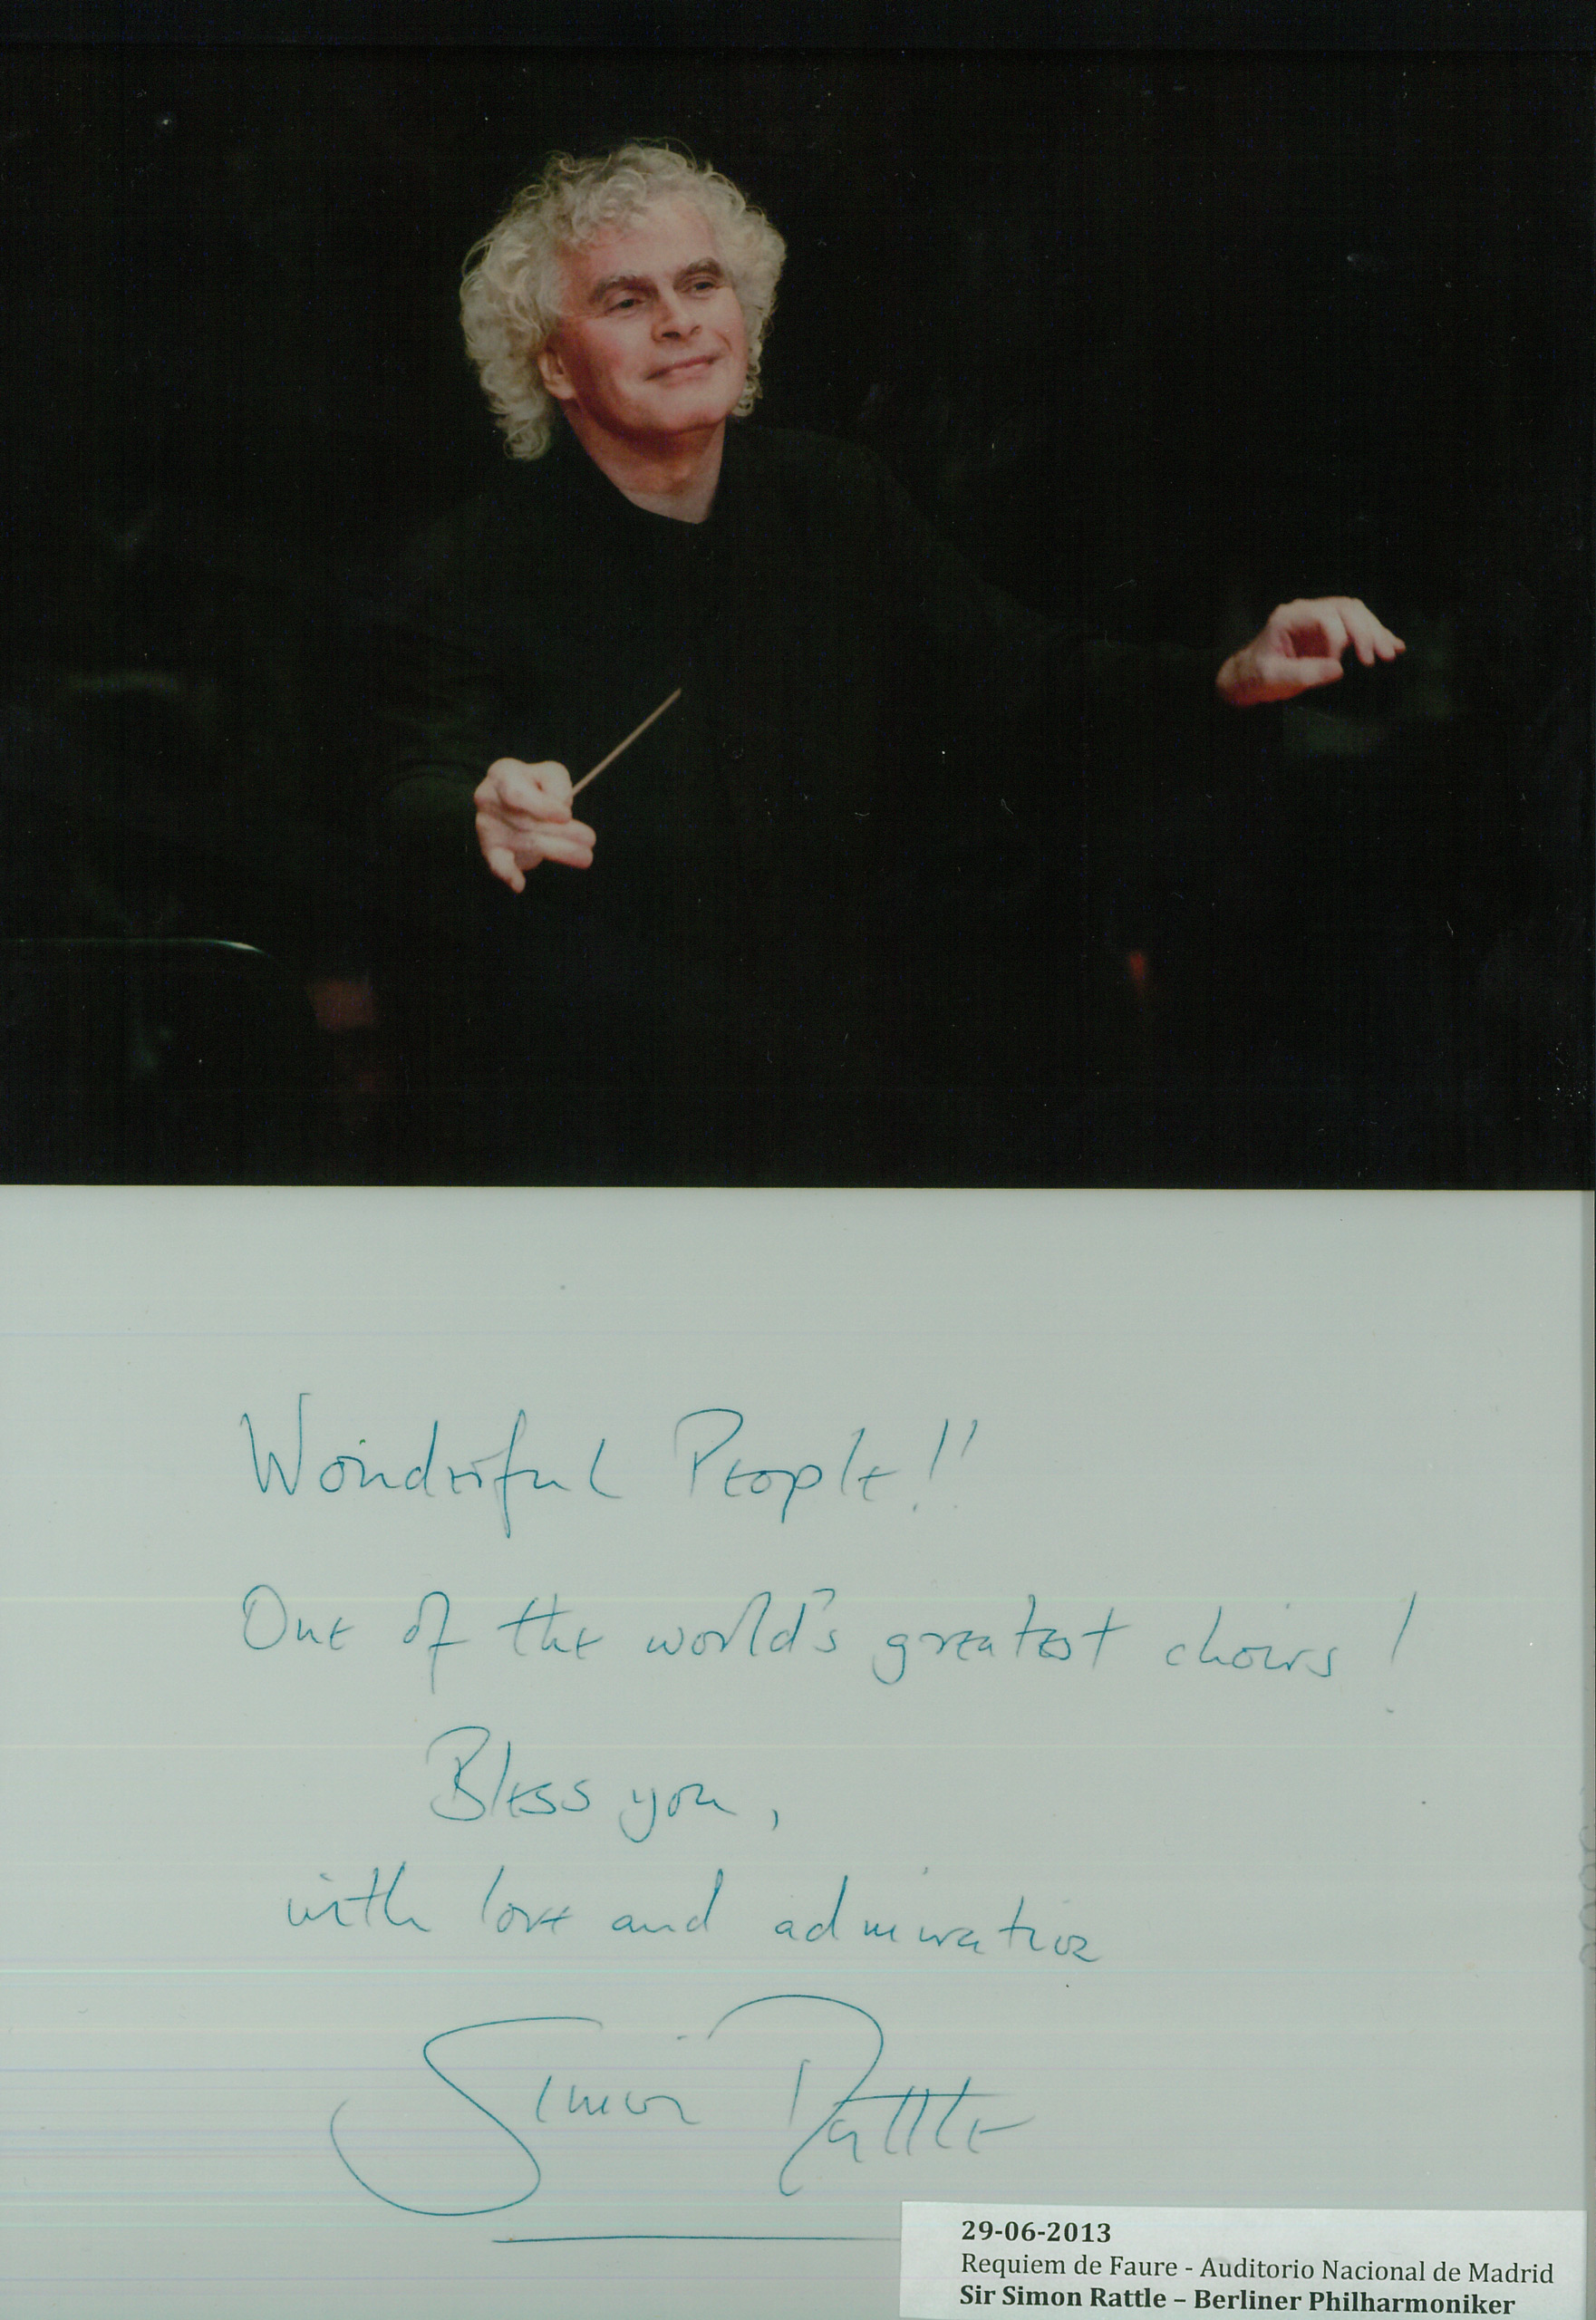 Wonderful People!!
One of the world's greatest choirs!
Bless you,
with love and admiration
Simon Rattle
29-06-2013
Requiem de Faure - Auditorio Nacional de Madrid
Sir Simon Rattle – Berliner Philharmoniker